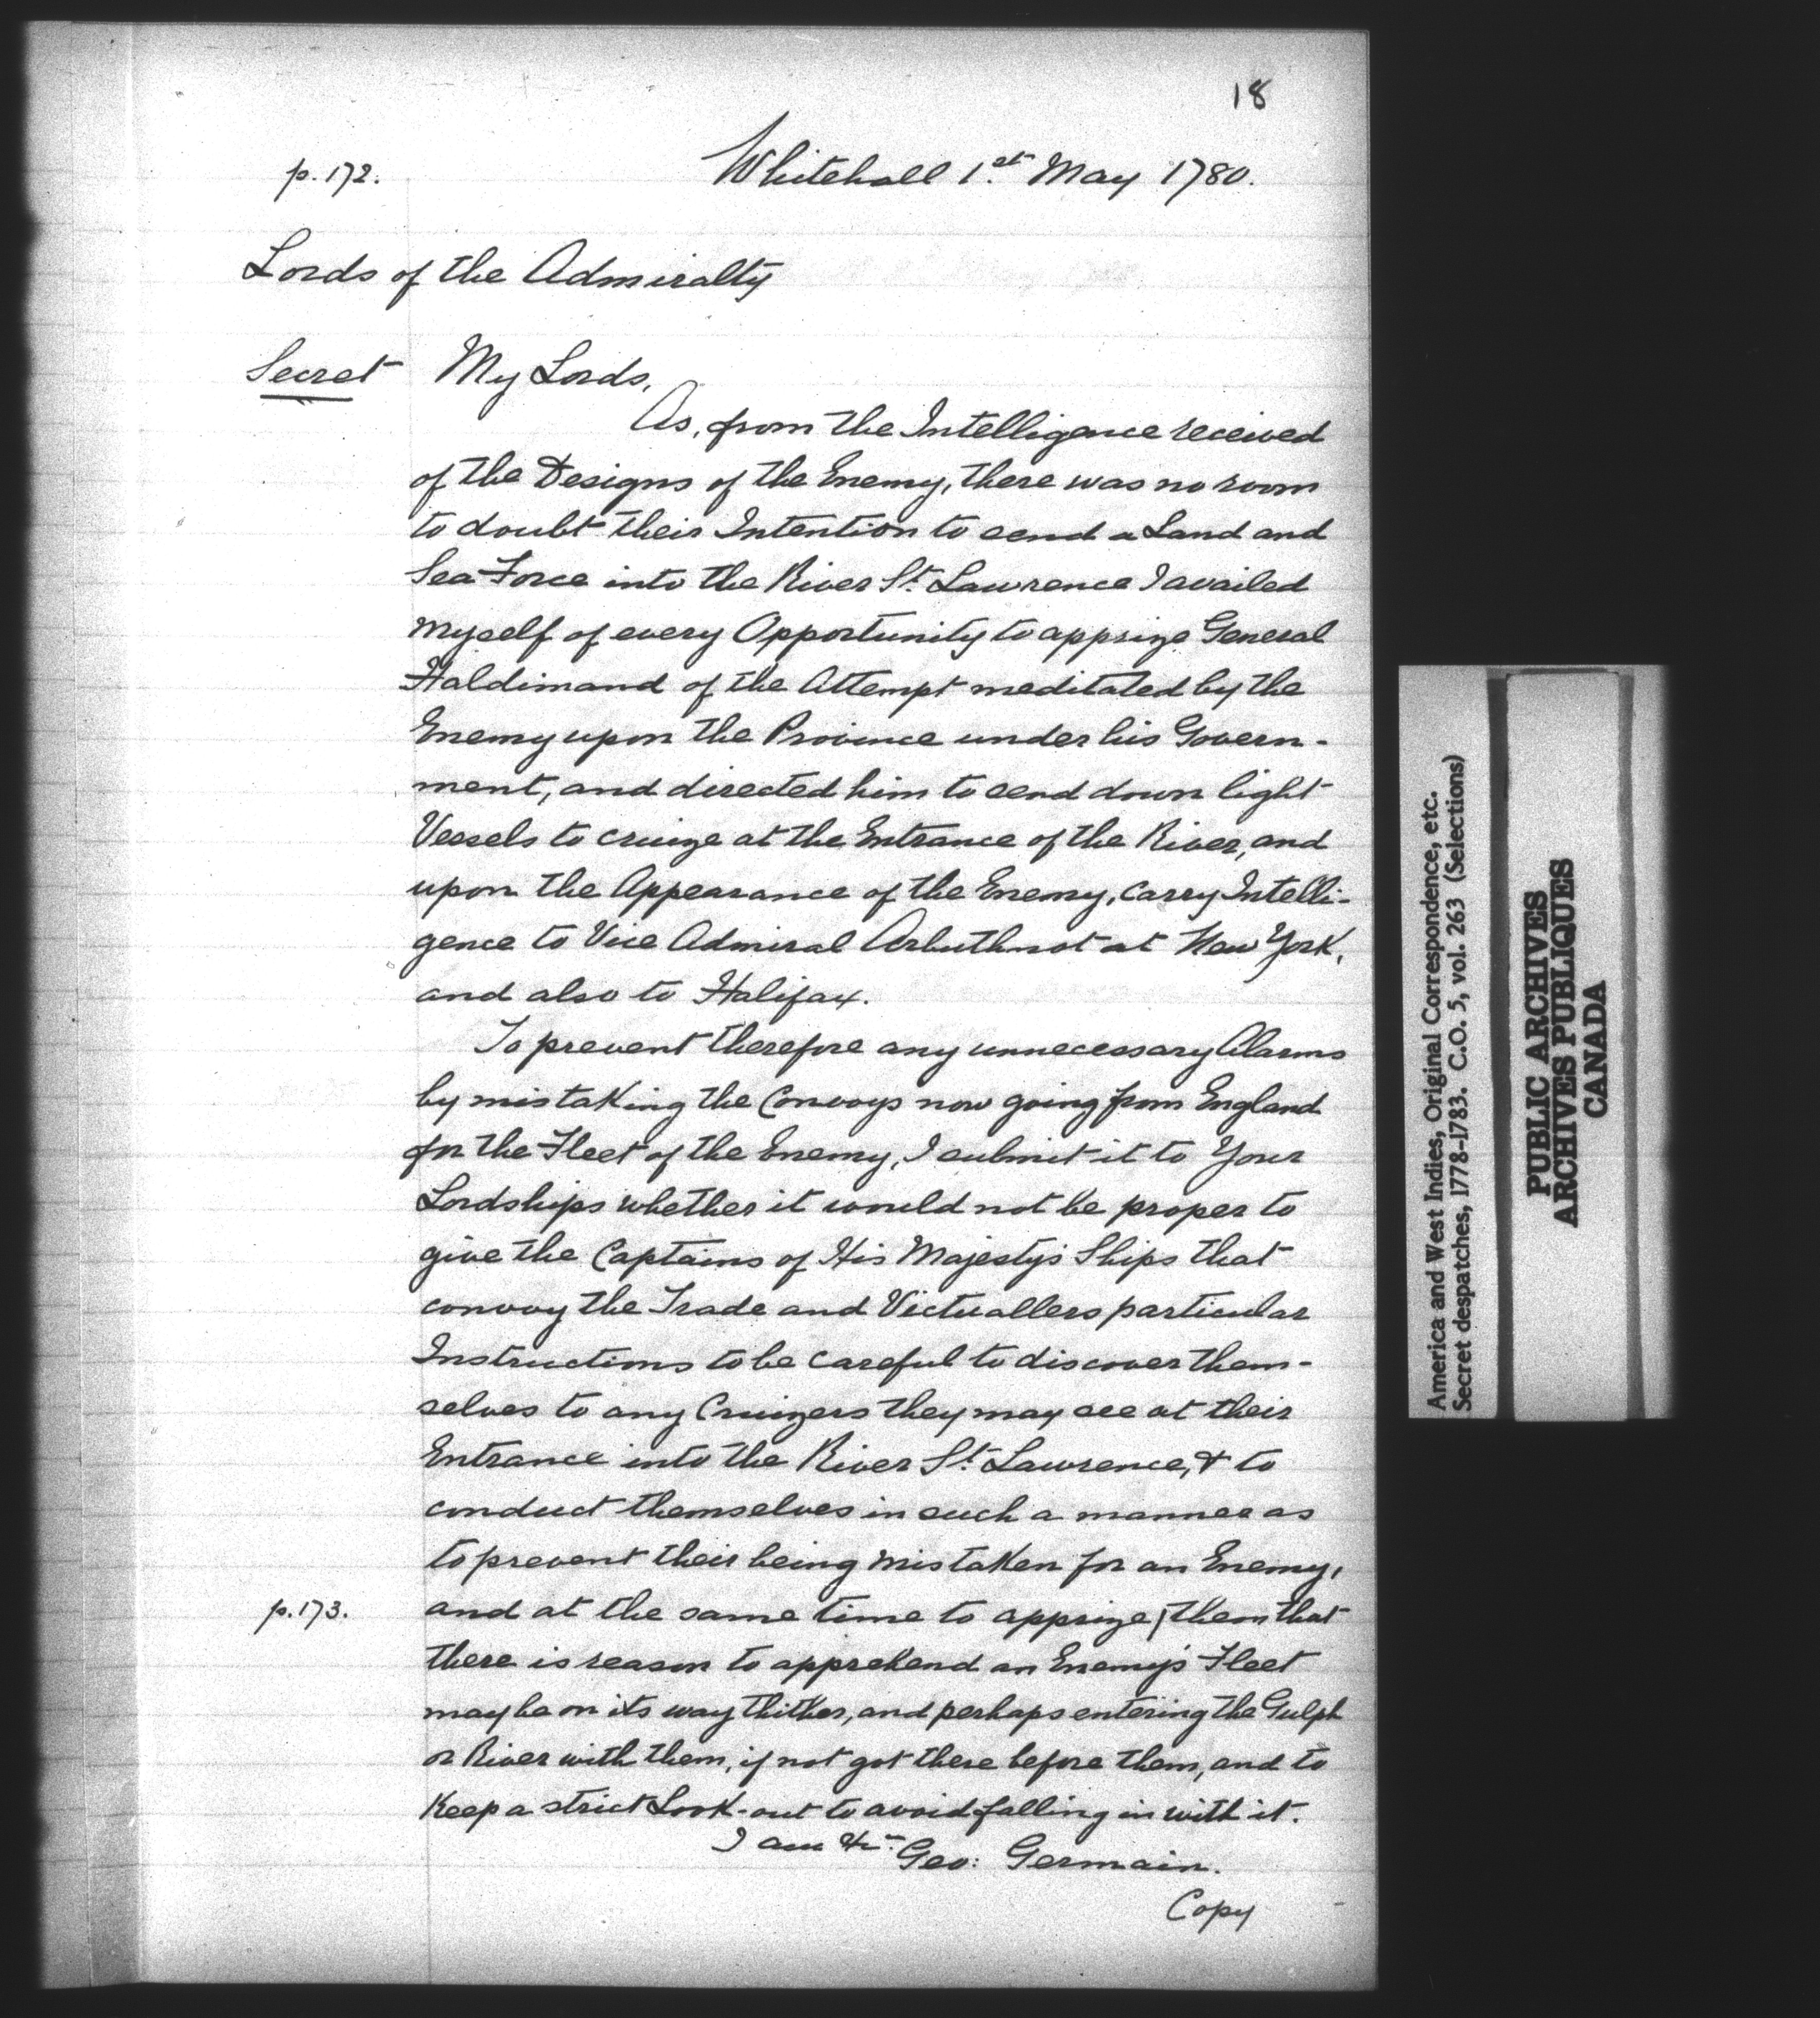 18
p. 172.
Whitehall 1st May 1780.
Lords of the Admiralty
Secret My Lords,
As, from the Intelligence received
of the Designs of the Enemy, there was no room
to doubt their Intention to send a Land and
Sea Force into the River St. Lawrence I availed
myself of every Opportunity to apprize General
Haldimand of the Attempt meditated by the
Enemy upon the Province under his Govern-
ment, and directed him to send down light
Vessels to cruize at the Entrance of the River, and
upon the Appearance of the Enemy, carry Intelli-
gence to Vice Admiral Arbuthnot at New York,
and also to Halifax.
To prevent therefore any unnecessary Alarms
by mistaking the Convoys now going from England
for the Fleet of the Enemy, I submit it to Your
Lordships whether it would not be proper to
give the Captains of His Majesty's Ships that
convoy the Trade and Victuallers particular
Instructions to be careful to discover them-
selves to any Cruizers they may see at their
Entrance into the River St. Lawrence, & to
conduct themselves in such a manner as
to prevent their being mistaken for an Enemy,
p. 173.
and at the same time to apprize | them that
there is reason to apprehend an Enemy's Fleet
may be on its way thither, and perhaps entering the Gulph
or River with them, if not got there before them, and to
keep a strict Look-out to avoid falling in with it.
I am &c.
Geo: Germain.
Copy
America and West Indies, Original Correspondence, etc.
Secret despatches, 1778-1783. C.O. 5, vol. 263 (Selections)
PUBLIC ARCHIVES
ARCHIVES PUBLIQUES
CANADA